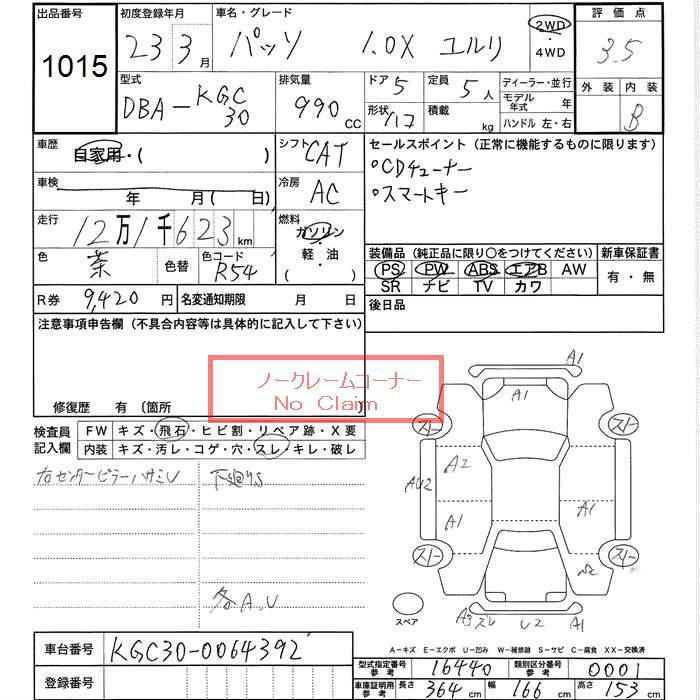 出品番号 初度登録年月 車名・グレード 評価点
1015 23 3月 パッソ 1.0X ユルリ 2WD・4WD 3.5
型式 排気量 ドア 5 定員 5人 ディーラー・並行 外装 内装
DBA-KGC30 990CC 形状 積載 kg モデル年式 年 B
ハンドル 左・右
車歴 自家用・( ) シフト CAT セールスポイント (正常に機能するものに限ります)
車検 年 月(日) 冷房 AC °CDチューナー
°スマートキー
走行 12万1千623km 燃料 ガソリン・軽・油 ( )
色 茶 色替 色コード R54 装備品 (純正品に限り○をつけてください) 新車保証書
PS PW ABS エアB AW 有・無
SR ナビ TV カワ
R券 9,420円 名変通知期限 月 日 後日品
注意事項申告欄 (不具合内容等は具体的に記入して下さい)
ノークレームコーナー
No Claim
修復歴 有 〔箇所 〕
検査員記入欄 FW キズ・飛石・ヒビ割・リペア跡・X要
内装 キズ・汚レ・コゲ・穴・スレ・キレ・破レ
右センターピラーハサミU 下廻りS
各A.U
A1
A1
A2
AU2
A1 A1
スペア A3 ズレ U2 A1
A-キズ E-エクボ U-凹み W-補修跡 S-サビ C-腐食 XX-交換済
車台番号 KGC30-0064392
登録番号
型式指定番号 参考 16440 類別区分番号 参考 0001
車庫証明用 参考 長さ 364cm 幅 166cm 高さ 153cm